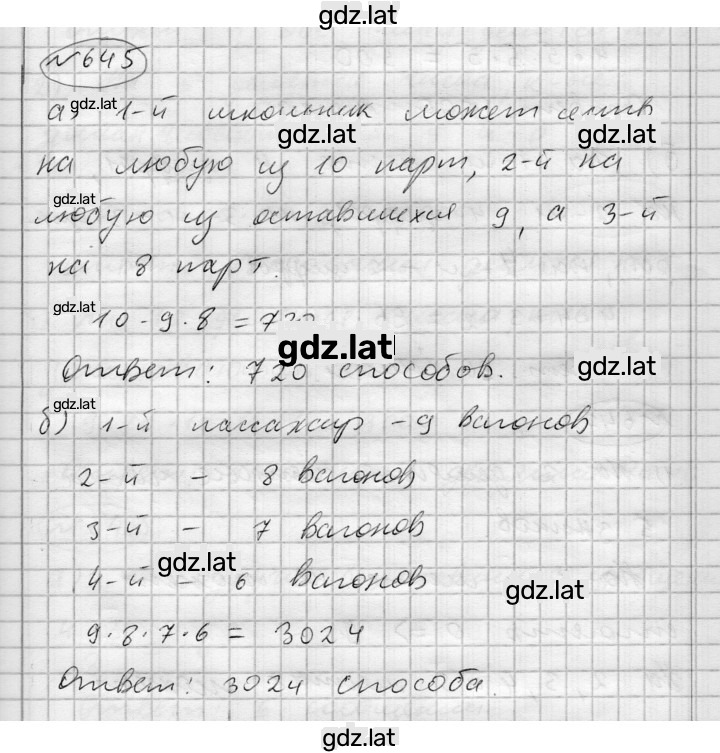 gdz.lat
№645
gdz.lat
а) 1-й школьник может сесть
gdz.lat gdz.lat
на любую из 10 парт, 2-й на
gdz.lat
любую из оставшихся 9, а 3-й
на 8 парт.
gdz.lat
10·9·8 = 720
gdz.lat
Ответ: 720 способов.
gdz.lat
gdz.lat
б) 1-й пассажир - 9 вагонов
2-й - 8 вагонов
3-й - 7 вагонов
gdz.lat
4-й - 6 вагонов
gdz.lat
9·8·7·6 = 3024
Ответ: 3024 способа.
gdz.lat